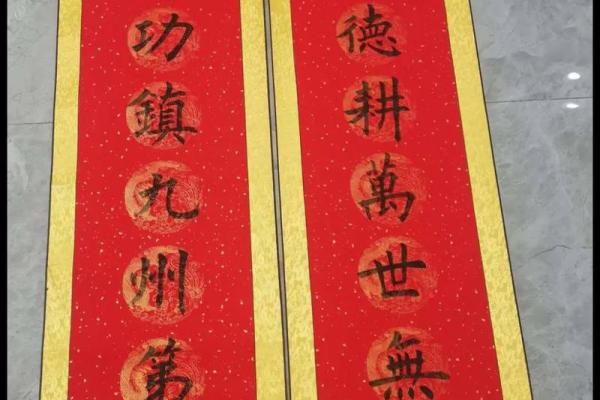 德耕萬世無
功鎮九州第